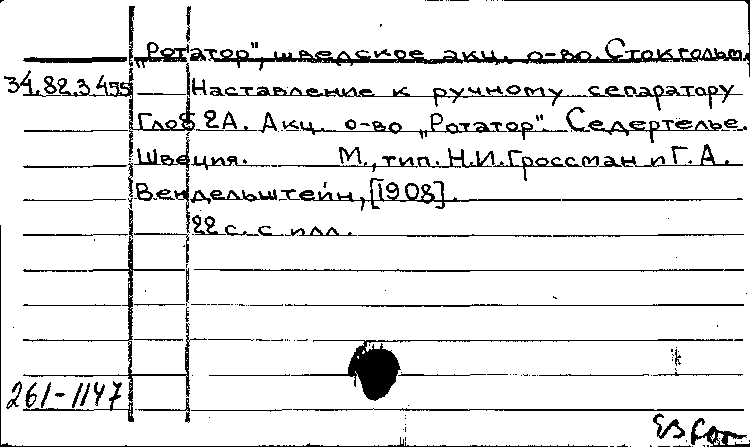 „Ротатор", шведское акц. о-во. Стокгольм.
34.82.3.455 Наставление к ручному сепаратору
Глоб 2А. Акц. о-во „Ротатор". Седертелье.
Швеция. М., тип. Н.И. Гроссман и Г.А.
Вендельштейн, [1908].
22 с. с илл.
261-1147